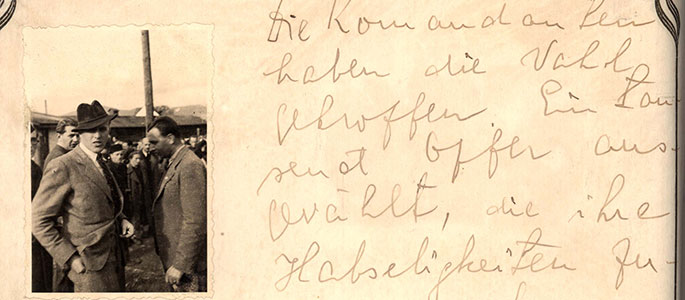 Die Komandanten
haben die Wahl
getroffen. Ein Tau-
send Opfer aus-
gewählt, die ihre
Habseligkeiten zu-